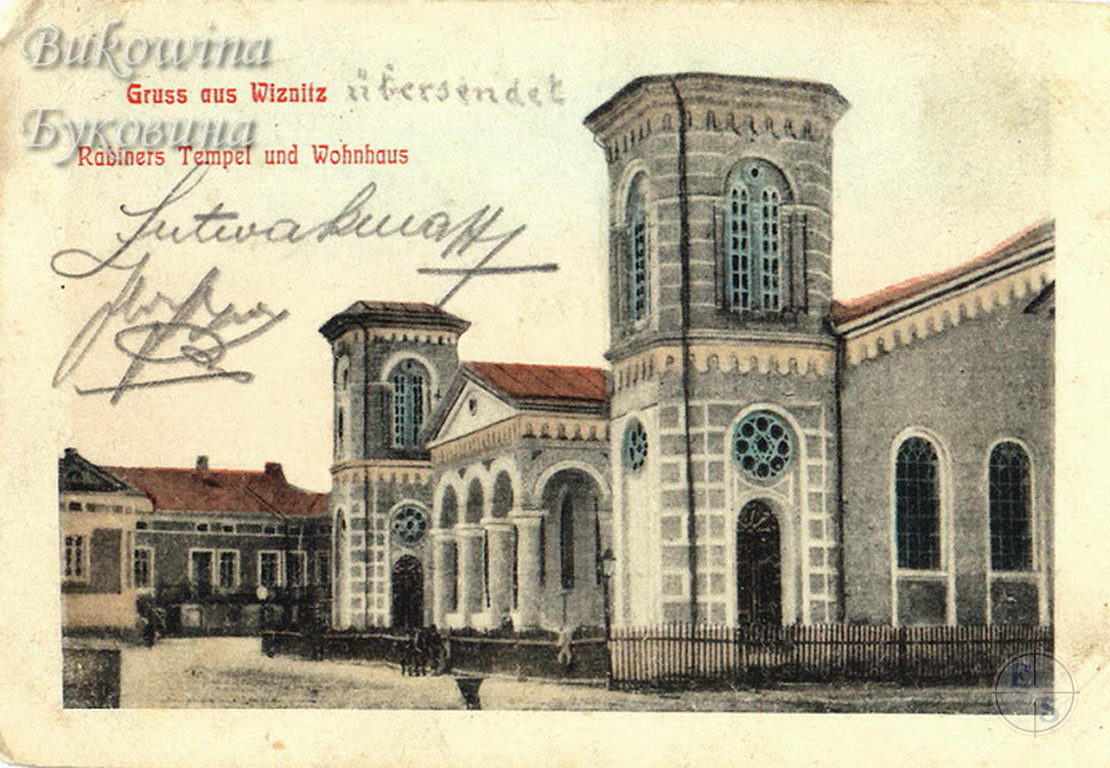 Bukowina
Gruss aus Wiznitz übersendet
Буковина
Rabiners Tempel und Wohnhaus
E
S